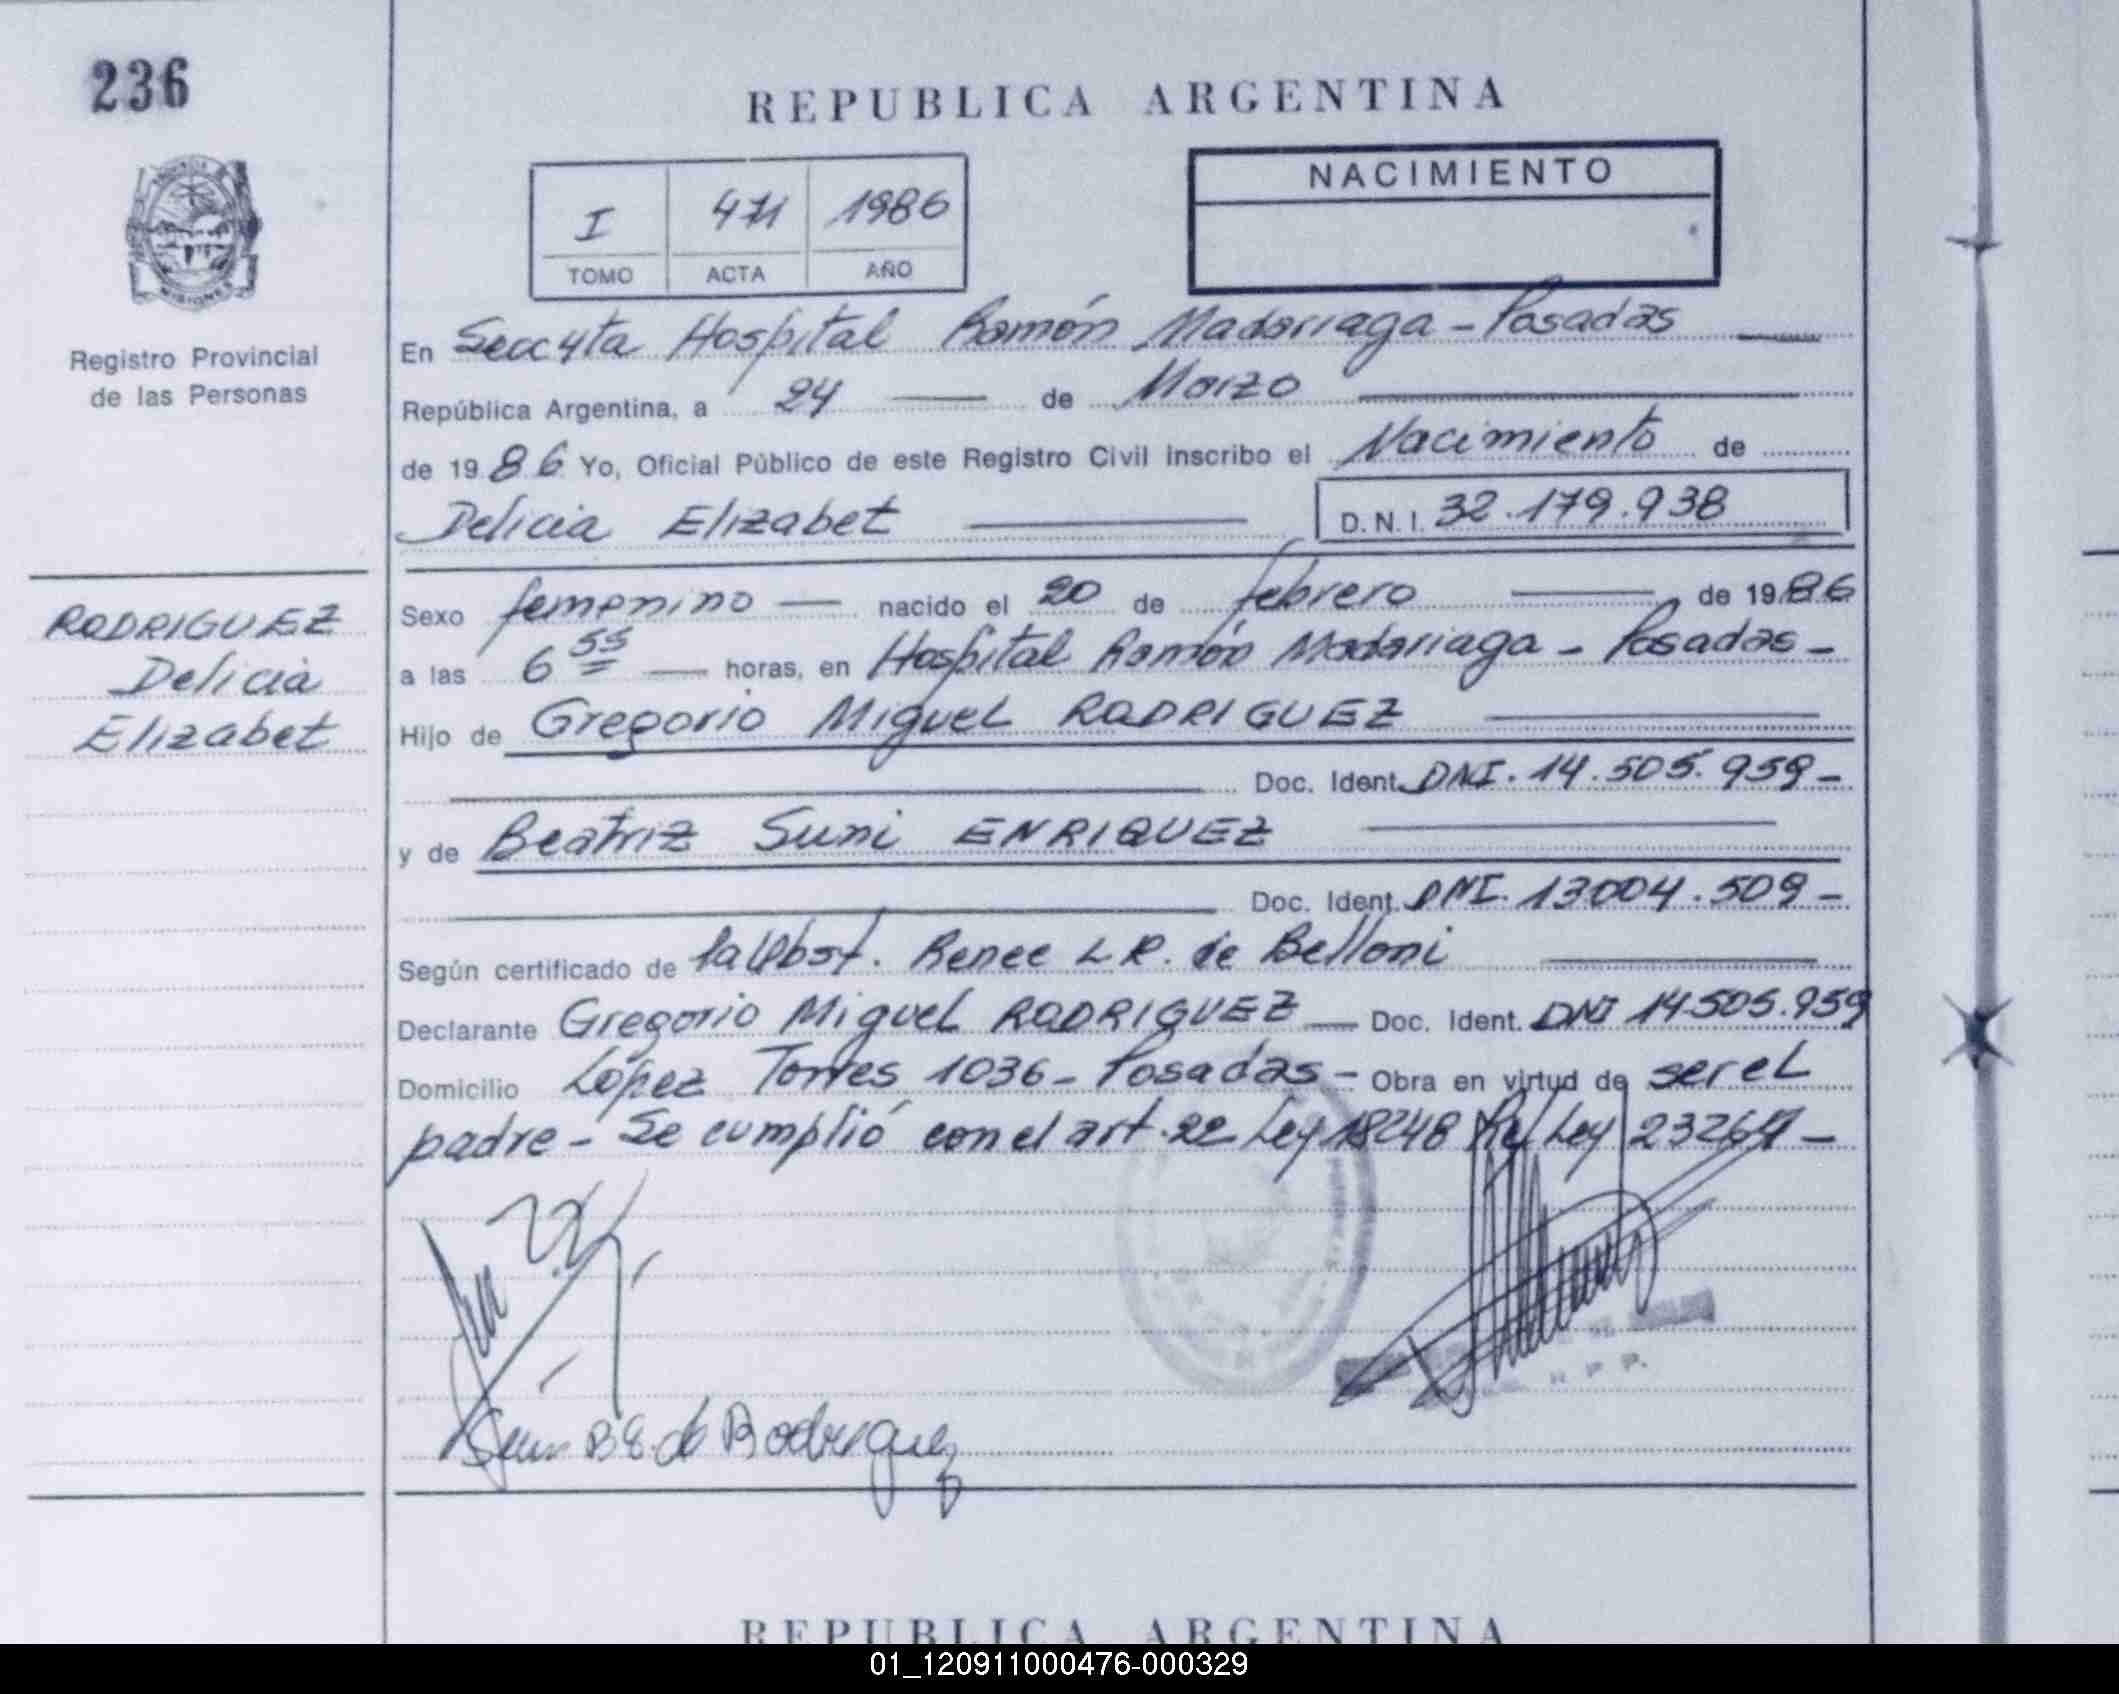 236
REPUBLICA ARGENTINA
I 471 1986
TOMO ACTA AÑO
NACIMIENTO
MISIONES
Registro Provincial
de las Personas
En Secc 4ta Hospital Ramón Madariaga - Posadas
República Argentina, a 24 de Marzo
de 19 86 Yo, Oficial Público de este Registro Civil inscribo el Nacimiento de
Delicia Elizabet D.N.I. 32.179.938
RODRIGUEZ
Delicia
Elizabet
Sexo femenino nacido el 20 de febrero de 19 86
a las 6 55 horas, en Hospital Ramón Madariaga - Posadas -
Hijo de Gregorio Miguel RODRIGUEZ
Doc. Ident. DNI. 14.505.959 -
y de Beatriz Suni ENRIQUEZ
Doc. Ident. DNI. 13004.509 -
Según certificado de la Obst. Renee L R. de Belloni
Declarante Gregorio Miguel RODRIGUEZ Doc. Ident. DNI 14.505.959
Domicilio López Torres 1036 - Posadas - Obra en virtud de ser el
padre - Se cumplió con el art. 22 Ley 18248 Ref Ley 23264 -
B E. de Rodriguez
REPUBLICA ARGENTINA
01_120911000476-000329